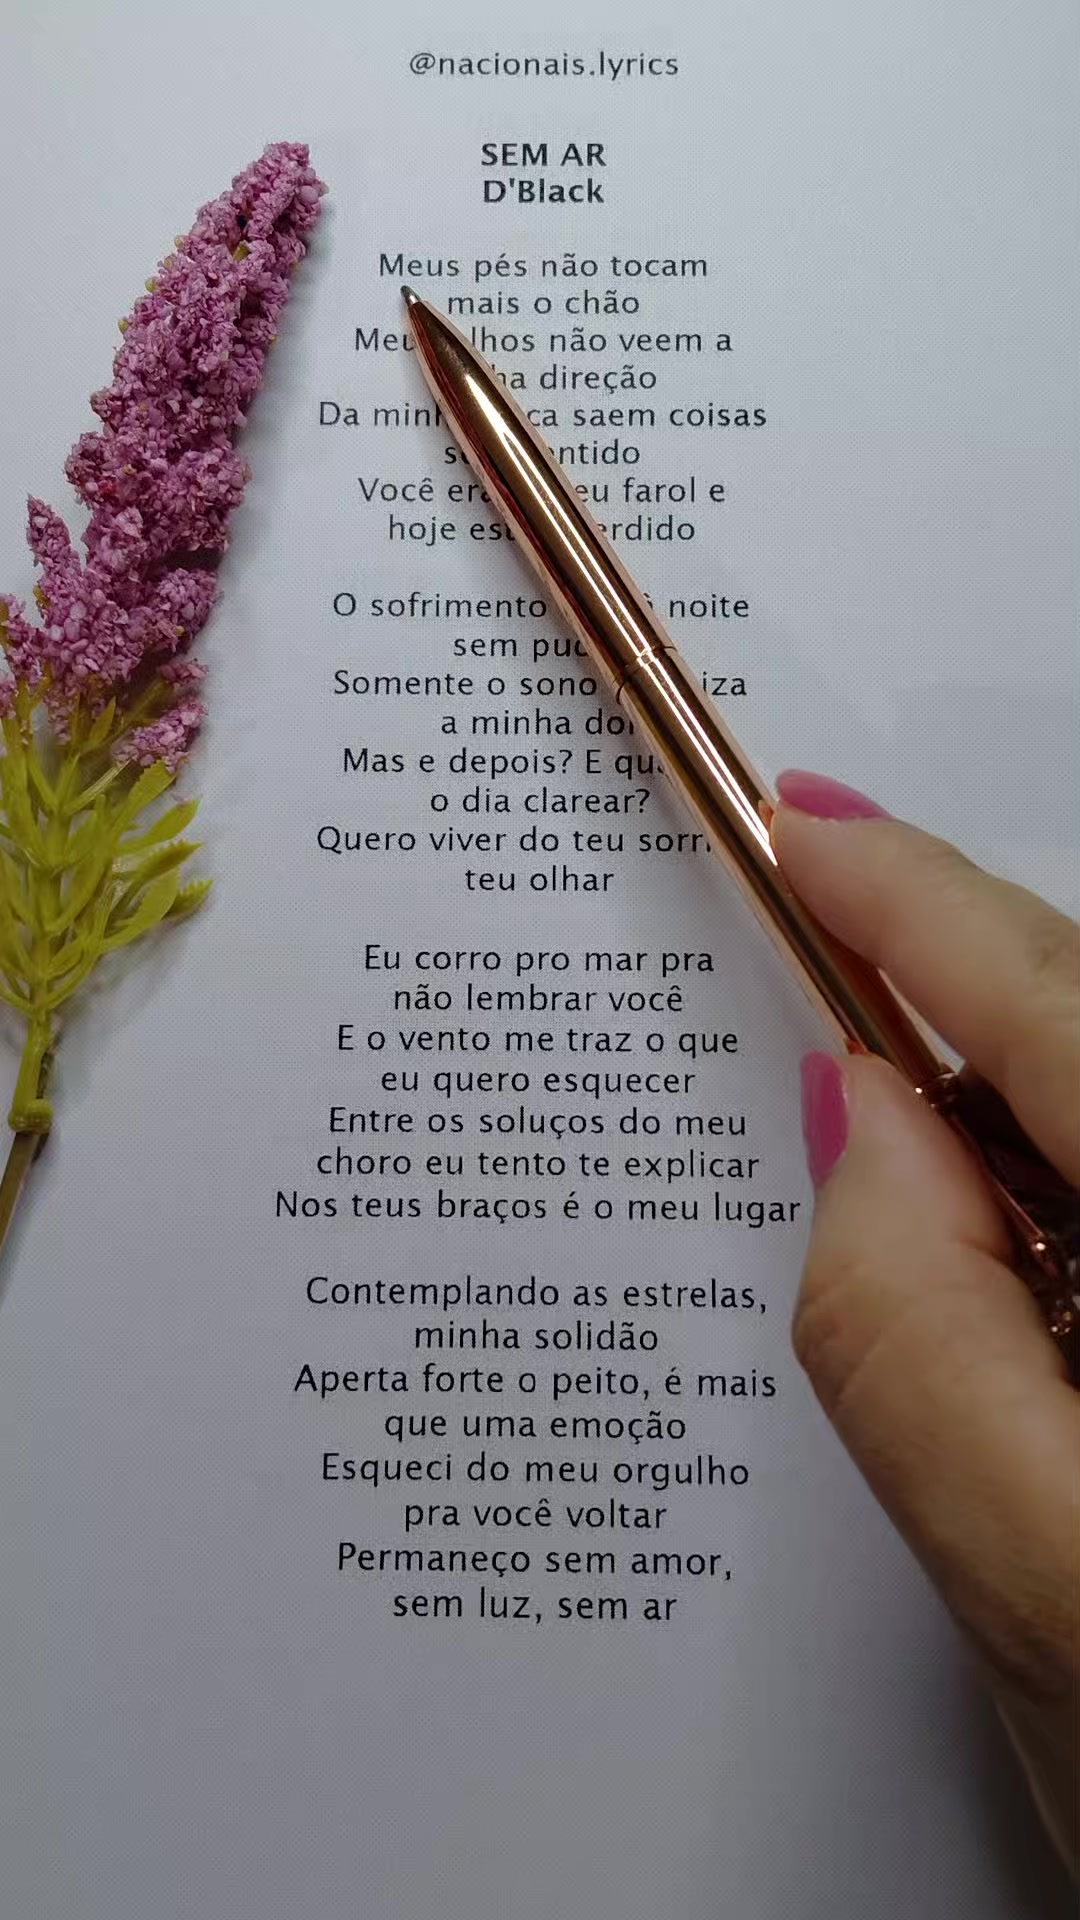 @nacionais.lyrics
SEM AR
D'Black
Meus pés não tocam
mais o chão
não veem a
direção
Da saem coisas

Você farol e
hoje
O sofrimento noite
sem
Somente o sono
a minha
Mas e depois? E
o dia clarear?
Quero viver do teu
teu olhar
Eu corro pro mar pra
não lembrar você
E o vento me traz o que
eu quero esquecer
Entre os soluços do meu
choro eu tento te explicar
Nos teus braços é o meu lugar
Contemplando as estrelas,
minha solidão
Aperta forte o peito, é mais
que uma emoção
Esqueci do meu orgulho
pra você voltar
Permaneço sem amor,
sem luz, sem ar